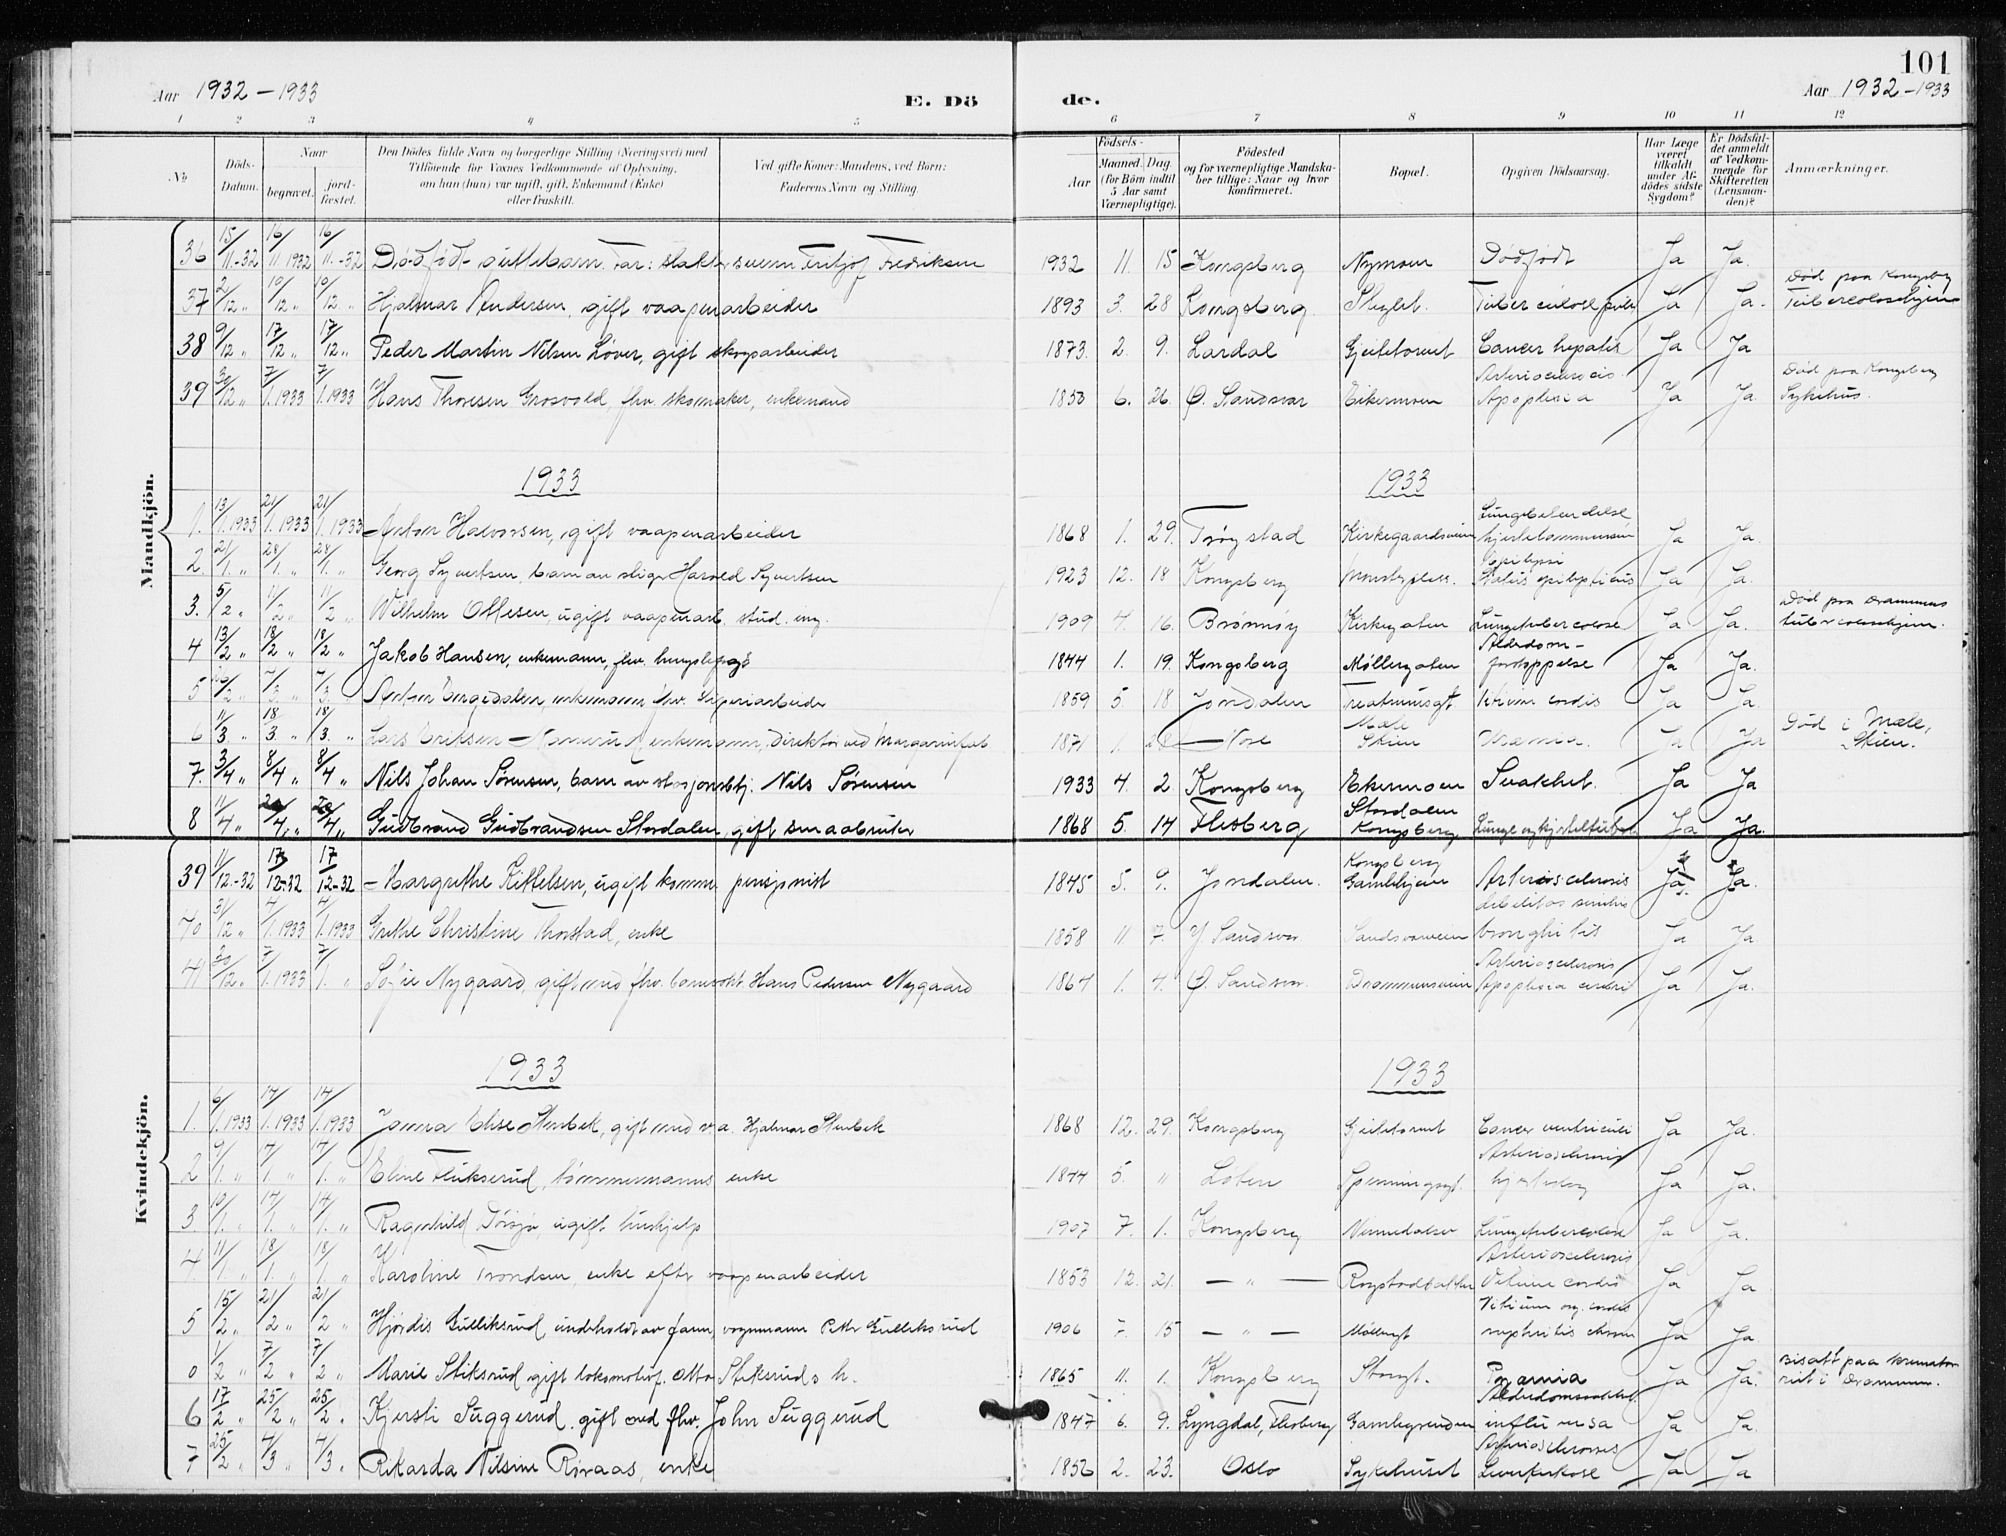 101
Aar 1932 – 1933
E. Dö de.
Aar 1932 – 1933
1 2 3 4 5 6 7 8 9 10 11 12
No
Döds-Datum.
Naar
begravet.
jord-fæstet.
Den Dödes fulde Navn og borgerlige Stilling (Næringsvei) med
Tilföiende for Voxnes Vedkommende af Oplysning,
om han (hun) var ugift, gift, Enkemand (Enke)
eller fraskilt.
Ved gifte Koner: Mandens, ved Börn:
Faderens Navn og Stilling.
Födsels-
Aar
Maaned Dag
(for Börn indtil
5 Aar samt
Værnepligtige).
Födested
og for værnepligtige Mandska-
ber tillige: Naar og hvor
konfirmeret.
Bopæl.
Opgiven Dödsaarsag.
Har Læge
været
tilkaldt
under Af-
dödes sidste
Sygdom?
Er Dödsfal-
det anmeldt
af Vedkom-
mende for
Skifteretten
(Lensman-
den)?
Anmærkninger.
Mandkjön.
36 15/11-32 16/11 1932 16/11-32 Dødfødt guttebarn. Far: slaktersvenn Fritjof Fredriksen 1932 11. 15 Kongsberg Nymoen Dødfødt Ja Ja.
37 2/12 " 10/12 " 10/12 " Hjalmar Andersen, gift vaapenarbeider 1893 3. 28 Kongsberg Tuberculose pulm Ja Ja. Død paa Kongsberg Tuberculosehjem
38 9/12 " 17/12 " 17/12 " Peder Martin Nilsen Løver, gift skogsarbeider 1873. 2. 9. Lardal Geitetoment Cancer hepatis Ja Ja
39 30/12 " 7/1.1933 7/1.1933 Hans Thoresen Grosvold, fhv. skomaker, enkemand 1853 6. 26. Ø. Sandsvær Eikermoen Arteriosclerocis. Apoplexia Ja Ja Død paa Kongsberg Sykehus.
1933 1933
1. 13/1.1933 21/1.1933 21/1.1933 Anton Halvorsen, gift vaapenarbeider 1868 1. 29. Trøgstad Kirkegaardsveien Lungebetendelse Ja Ja.
2. 21/1. " 28/1. " 28/1. " Georg Syvertsen, barn av slip. Harald Syvertsen 1923 12. 18 Kongsberg Epilepsi Status epilepticus Ja Ja.
3. 5/2 " 11/2 " 11/2 " Wilhelm Ottesen, ugift vaapenarb. stud. ing. 1909 4. 16. Brønnøy Kirkegaten Lungetuberculose Ja Ja. Død paa Drammens tuberculosehjem.
4 13/2 " 18/2 " 18/2 " Jakob Hansen, enkemann, fhv. 1844 1. 19. Kongsberg Møllergaten Alderdom- Ja Ja.
5 7/3. " 7/3. " Anton enkemann fhv. sliperiarbeider 1859 5. 18. Jondalen Vitium cordis Ja Ja
6 11/3 " 18/3. " 18/3. " Lars Eriksen enkemann, direktør ved Margarinfab 1871 1. Mæle Skien Uræmia. Ja Ja Død i Mæle, Skien.
7. 3/4 " 8/4 " 8/4 " Nils Johan Sørensen, barn av stasjonsbtj. Nils Sørensen 1933 4. 2 Kongsberg Ekermoen Svakhet. Ja Ja
8 11/4 " 20/4 " 20/4 " Gudbrand Gudbrandsen Stordalen, gift smaabruker 1868 5. 14 Flesberg Stordalen Kongsberg Ja Ja.
Kvindekjön.
39 11/12-32 17/12-32 17/12-32 Margrethe Kittelsen, ugift komm. pensjonist 1845 5. 9. Jondalen. Kongsberg Gamlehjem Arteriosclerosis Ja. Ja.
40 31/12 " 4/1.1933 4/1.1933 Grethe Christine Thorstad, enke 1858 11. 7. Y. Sandsvær Sandsværveien debilitas senilis bronchitis Ja Ja
41 30/12 " 7/1.1933 7/1. " Sofie Nygaard, gift med fhv. banevokt. Hans Pedersen Nygaard 1864 1. 4. Ø. Sandsvær. Drammensveien Arteriosclerosis Apoplexia cerebri Ja Ja.
1933 1933
1. 6/1.1933 14/1.1933 14/1.1933 Janna Elise Stenbek, gift med v.a. Hjalmar Stenbek 1868 12. 29. Kongsberg Geitetoment Cancer ventriculi Ja Ja.
2 9/1. " 1. " 1. " Eline Flukserud, tømmermanns enke 1844 5. " Løten Spenningsgt. Arteriosclerosis Ja Ja.
3. 10/1. " 14/1. " 14/1. " Ragnhild ugift hushjelp 1907 7. 1. Kongsberg Lungetuberculose Ja Ja.
4. 11/1. " 18/1. " 18/1. " Karoline Trondsen, enke efter vaapenarbeider 1853 12. 21. – " – Arteriosclerosis Vitium cordis Ja Ja
5 15/2 " 21/2 " 21/2 " Hjørdis Gulliksrud, underholdt av faren, vognmann Peter Gulliksrud 1906 7. 15 – " – Møllergt Vitium org. cordis nephritis chron Ja Ja
0 1/2 " 7/2 " 7/2 " Marie Stiksrud gift lokomotivf. Otto Stiksruds h. 1865 11. 1. Kongsberg Storgt. Ja Ja. Bisatt paa krematoriet i Drammen.
6 17/2 " 25/2 " 25/2 " Kjersti Suggerud. gift med fhv. John Suggerud 1847 6. 9. Lyngdal, Flesberg Gamlegrenden Alderdomssvakhet influensa Ja Ja.
7 25/2 " 4/3 " 4/3 " Rikarda Nilsine Røraas, enke 1856 2. 23. Oslo Sykehuset Arteriosclerosis Levercirkose Ja Ja